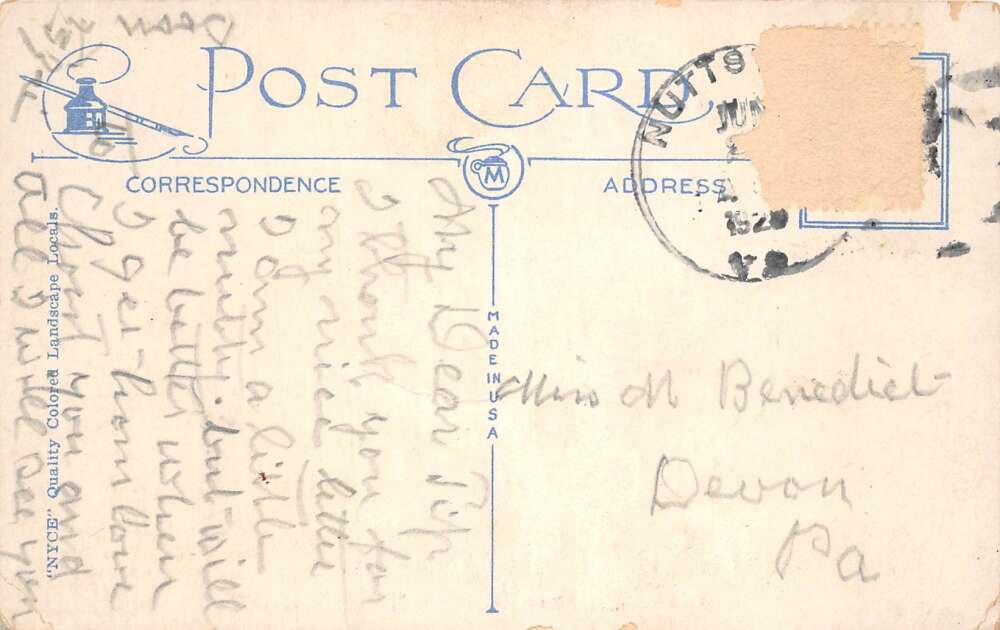 POST CARD
CORRESPONDENCE
ADDRESS
M
MADE IN USA
"NYCE" Quality Colored Landscape Locals.
NUTTS
JUN
1928
VA
My Dear Tip
I thank you for
my nice letter
I am a little
but will
be better when
I get home love
you and
all I will see you
soon
Miss M Benedict
Devon
Pa